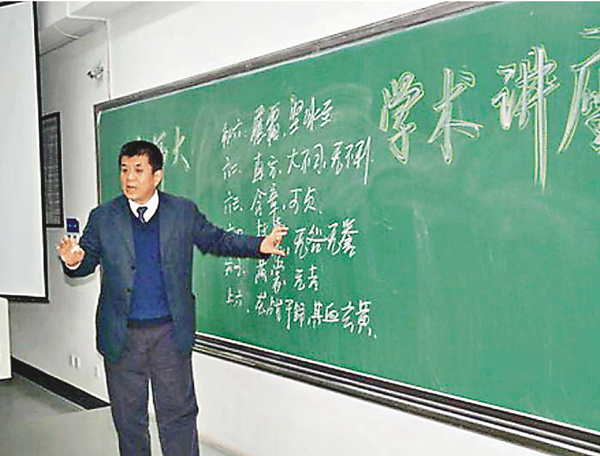 学术讲
大
初六、履霜,坚冰至
六二、直方、大不习,无不利.
六三、含章,可贞
无咎无誉
六五、黄裳,元吉
上六、龙战于野,其血玄黄.